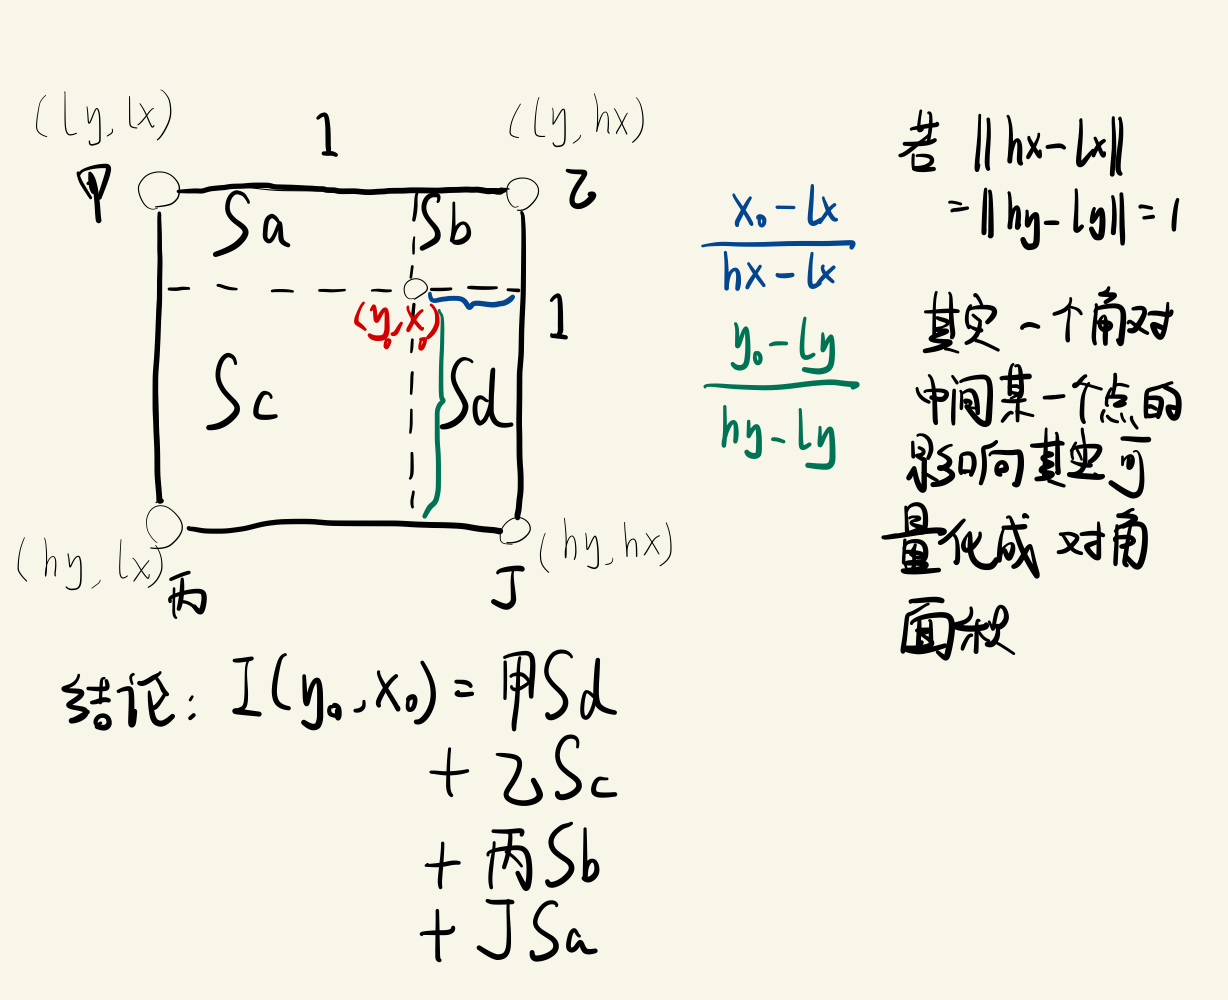 (ly, lx)
1
(ly, hx)
甲
乙
Sa
Sb
(y₀, x₀)
1
Sc
Sd
(hy, lx)
丙
丁
(hy, hx)
x₀ - lx
hx - lx
y₀ - ly
hy - ly
若 ‖hx - lx‖
= ‖hy - ly‖ = 1
其实一个角对
中间某一个点的
影响其实可
量化成 对角
面积
结论: I(y₀, x₀) = 甲Sd
+ 乙Sc
+ 丙Sb
+ 丁Sa